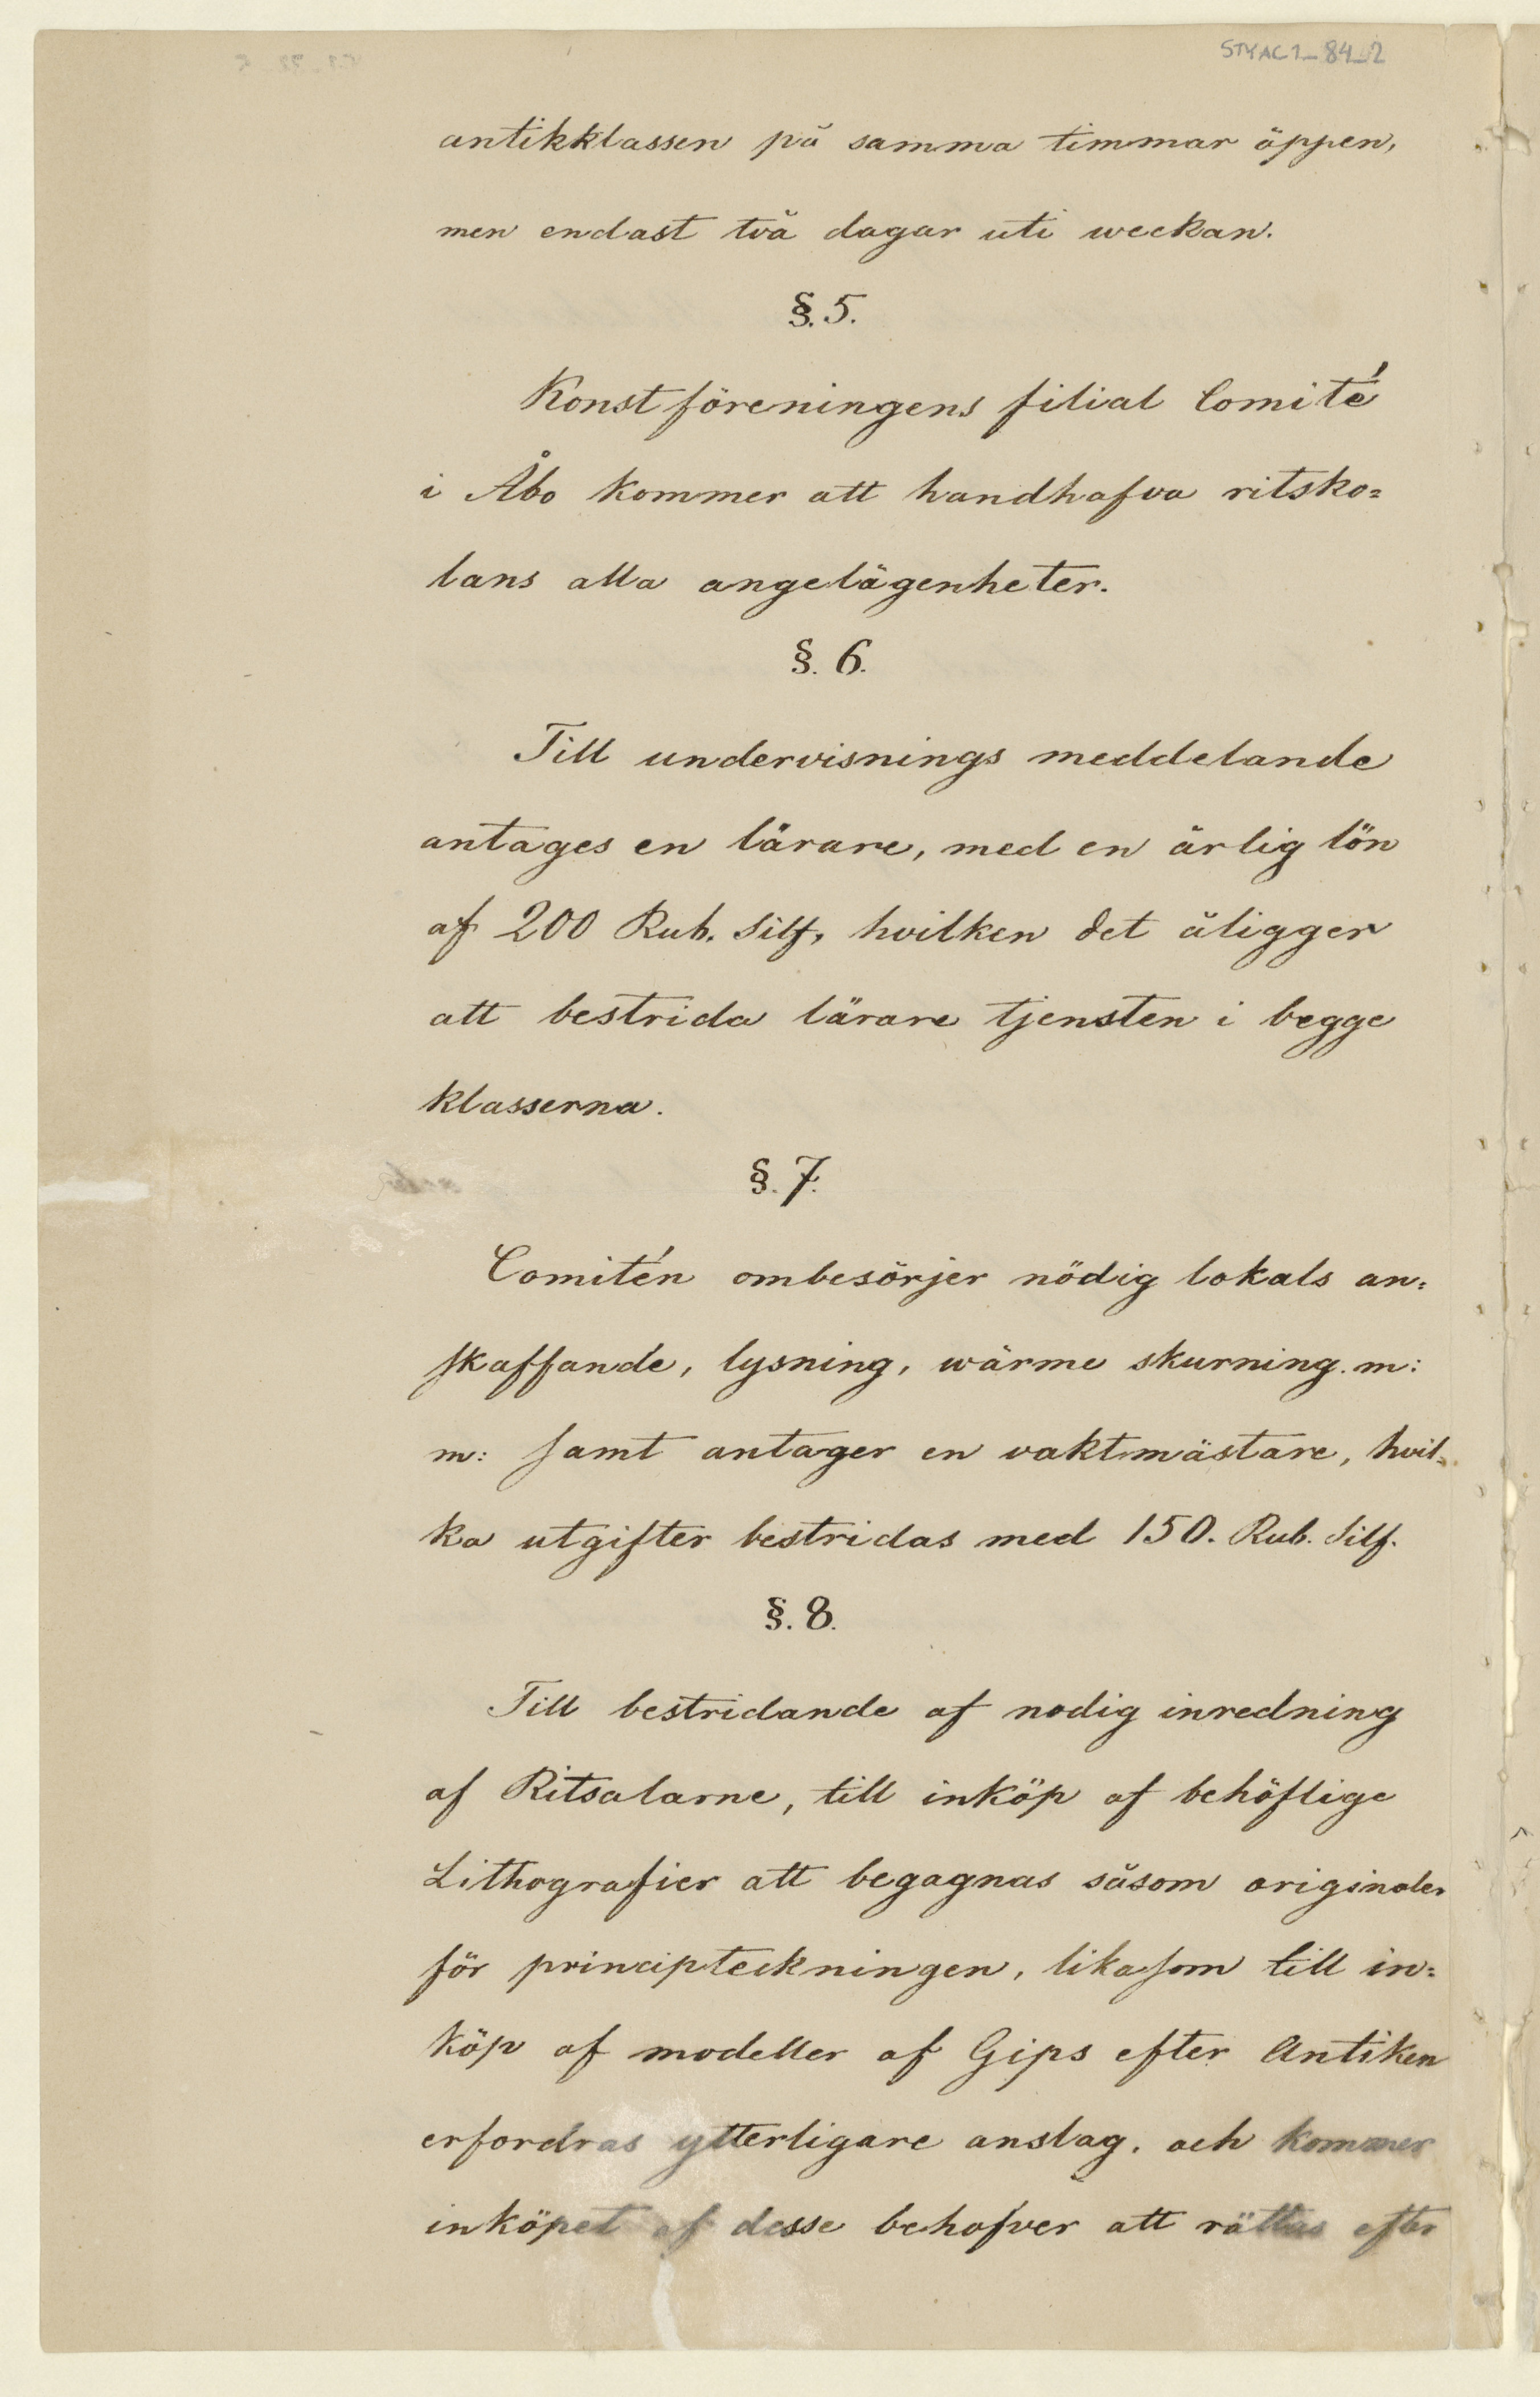 STYAC1_84_2
antikklassen på samma timmar öppen,
men endast två dagar uti weckan.
§. 5.
Konstföreningens filial Comité
i Åbo kommer att handhafva ritsko=
lans alla angelägenheter.
§. 6.
Till undervisnings meddelande
antages en lärare, med en årlig lön
af 200 Rub. Silf, hvilken det åligger
att bestrida lärare tjensten i begge
klasserna.
§. 7.
Comitén ombesörjer nödig lokals an=
skaffande, lysning, wärme skurning. m:
m: samt antager en vaktmästare, hvil=
ka utgifter bestridas med 150. Rub. Silf.
§. 8.
Till bestridande af nodig inredning
af Ritsalarne, till inköp af behöflige
Lithografier att begagnas såsom originaler
för principteckningen, likasom till in=
köp af modeller af Gips efter Antiken
erfordras ytterligare anslag, och kommer
inköpet af desse behofver att rättas efter